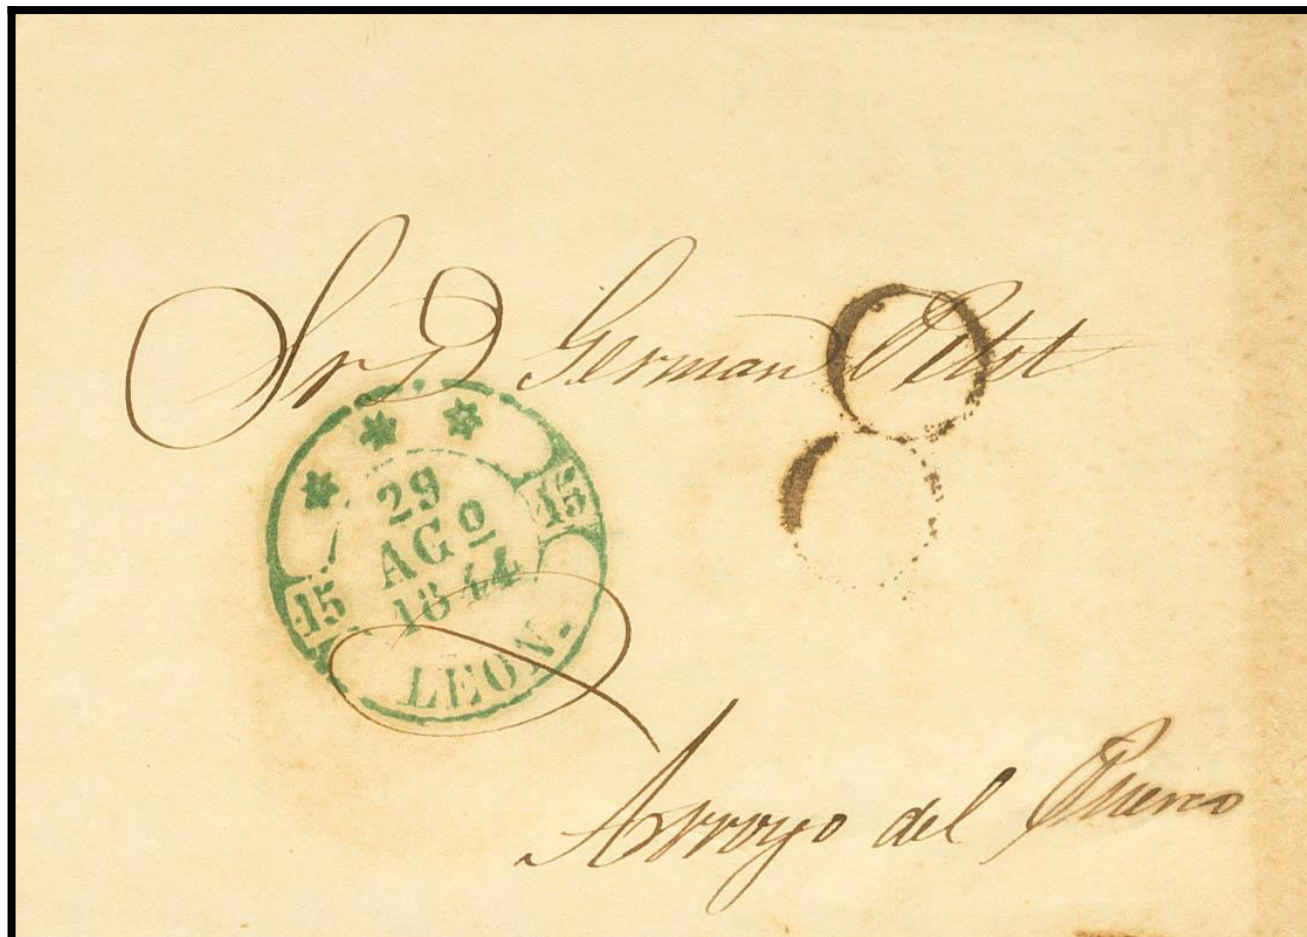 Sr D German Petit
8
15
29
AGº
1844
15
LEON.
Arroyo del Puerco